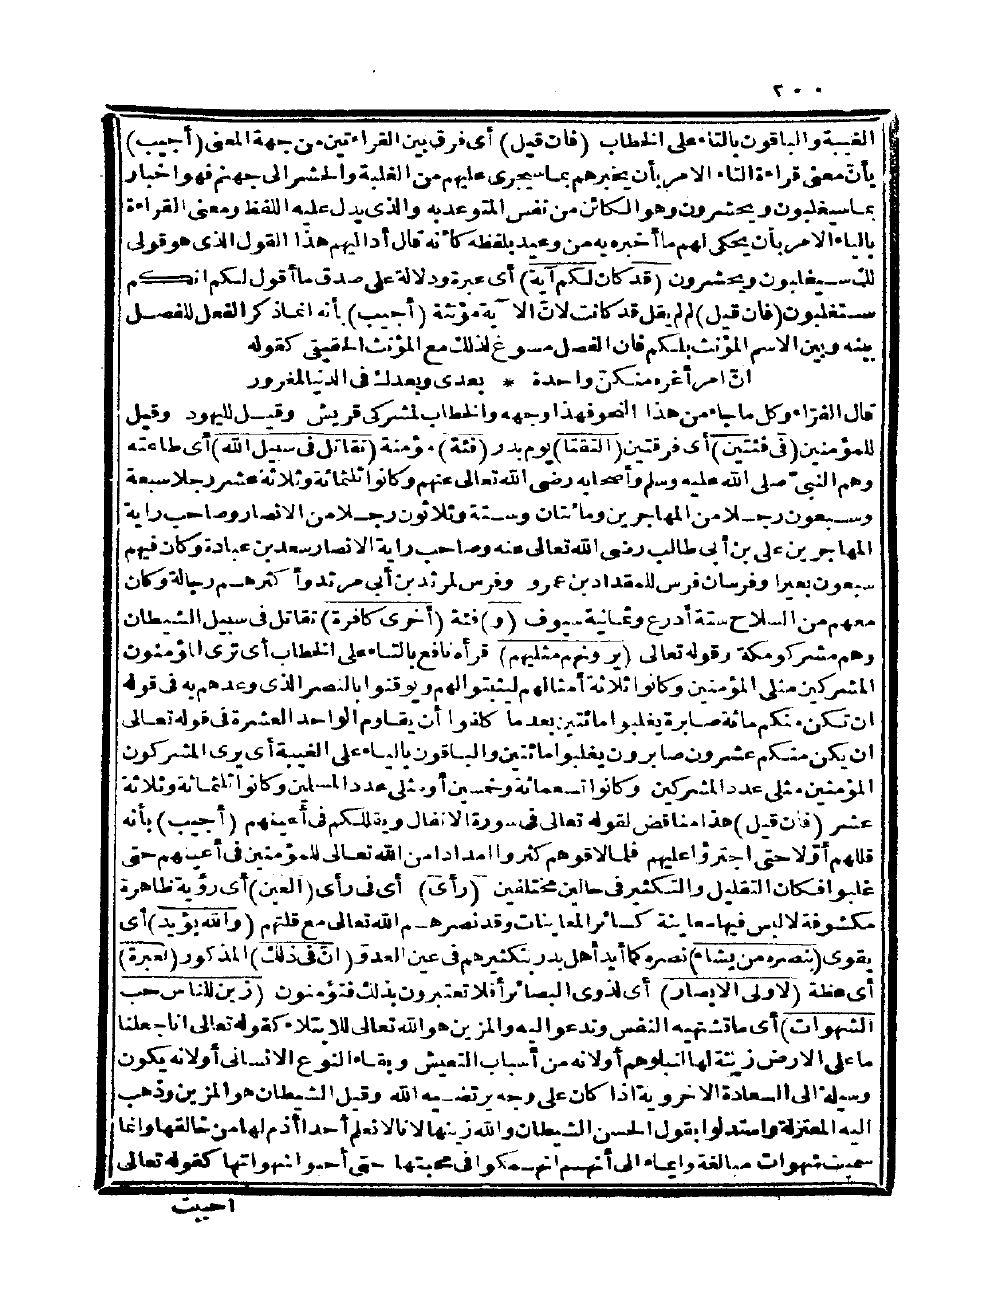 ٢٠٠
الغيبة والباقون بالتاء على الخطاب (فان قيل) أى فرق بين القراءتين من جهة المعنى (أجيب)
بأن معنى قراءة التاء الامر بأن يخبرهم بما سيجرى عليهم من الغلبة والحشر الى جهنم فهو اخبار
بما سيغلبون ويحشرون وهو الكائن من نفس المتوعد به والذى يدل عليه اللفظ ومعنى القراءة
بالياء الامر بأن يحكى لهم ما أخبره به من وعيد بلفظه كأنه قال أدّ اليهم هذا القول الذى هو قولى
لك سيغلبون ويحشرون (قد كان لكم آية) أى عبرة ودلالة على صدق ما أقول لكم انكم
ستغلبون (فان قيل) لم لم يقل قد كانت لانّ الآية مؤنثة (أجيب) بأنه انما ذكر الفعل للفصل
بينه وبين الاسم المؤنث بلكم فان الفصل مسوغ لذلك مع المؤنث الحقيقى كقوله
انّ امر أغره منكن واحدة * بعدى وبعدك فى الدنيا لمغرور
قال الفراء وكل ما جاء من هذا النحو فهذا وجهه والخطاب لمشركى قريش وقيل لليهود وقيل
للمؤمنين (فى فئتين) أى فرقتين (التقتا) يوم بدر (فئة) مؤمنة (تقاتل فى سبيل الله) أى طاعته
وهم النبىّ صلى الله عليه وسلم وأصحابه رضى الله تعالى عنهم وكانوا ثلثمائة وثلاثة عشر رجلا سبعة
وسبعون رجلا من المهاجرين ومائتان وستة وثلاثون رجلا من الانصار وصاحب راية
المهاجرين على بن أبى طالب رضى الله تعالى عنه وصاحب راية الانصار سعد بن عبادة وكان فيهم
سبعون بعيرا وفرسان فرس للمقداد بن عمرو وفرس لمرثد بن أبى مرثد وأكثرهم رجالة وكان
معهم من السلاح ستة أدرع وثمانية سيوف (و) فئة (أخرى كافرة) تقاتل فى سبيل الشيطان
وهم مشركو مكة وقوله تعالى (يرونهم مثليهم) قرأه نافع بالتاء على الخطاب أى ترى المؤمنون
المشركين مثلى المؤمنين وكانوا ثلاثة أمثالهم ليثبتوا لهم ويوقنوا بالنصر الذى وعدهم به فى قوله
ان تكن منكم مائة صابرة يغلبوا مائتين بعد ما كلفوا أن يقاوم الواحد العشرة فى قوله تعالى
ان يكن منكم عشرون صابرون يغلبوا مائتين والباقون بالياء على الغيبة أى يرى المشركون
المؤمنين مثلى عدد المشركين وكانوا تسعمائة وخمسين أو مثلى عدد المسلمين وكانوا ثلثمائة وثلاثة
عشر (فان قيل) هذا مناقض لقوله تعالى فى سورة الانفال ويقللكم فى أعينهم (أجيب) بأنه
قللهم أوّلا حتى اجترؤا عليهم فلما لاقوهم كثروا امدادا من الله تعالى للمؤمنين فى أعينهم حتى
غلبوا فكان التقليل والتكثير فى حالين مختلفين (رأى) أى فى رأى (العين) أى رؤية ظاهرة
مكشوفة لا لبس فيها معاينة كسائر المعاينات وقد نصرهم الله تعالى مع قلتهم (والله يؤيد) أى
يقوى (بنصره من يشاء) نصره كما أيد أهل بدر بتكثيرهم فى عين العدوّ (انّ فى ذلك) المذكور (لعبرة)
أى عظة (لاولى الابصار) أى لذوى البصائر أفلا تعتبرون بذلك فتؤمنون (زين للناس حب
الشهوات) أى ما تشتهيه النفس وتدعوا اليه والمزين هو الله تعالى للابتلاء كقوله تعالى انا جعلنا
ما على الارض زينة لها لنبلوهم أو لانه من أسباب التعيش وبقاء النوع الانسانى أو لانه يكون
وسيلة الى السعادة الاخروية اذا كان على وجه يرتضيه الله وقيل الشيطان هو المزين وذهب
اليه المعتزلة واستدلوا بقول الحسن الشيطان والله زينها لانا لا نعلم أحدا أذم لها من خالقها وانما
سميت شهوات مبالغة وايماء الى أنهم انهمكوا فى محبتها حتى أحبوا شهواتها كقوله تعالى
احببت